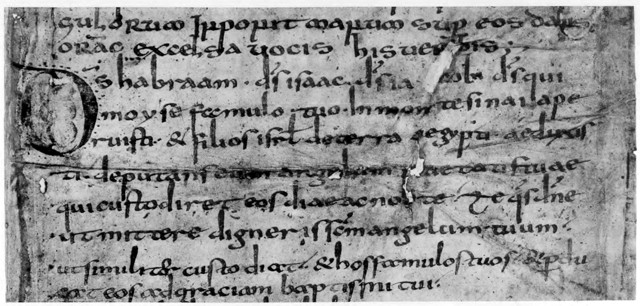 Inponit manum sup eos
excelsa uocis his uerbis
Ds habraam · ds isaac · ds iacob · ds qui
moyse famulo · tuo · In monte sinai ape
ruisti · & filios isrl de terra aegypti aeduxis
ti · deputans eum angelum pietatis tuae
qui custodiret eos diae ac nocte · Te qs dne
ut mittere digneris scm angelum tuum
ut similiter custodiat · & hos famulos tuos · & perdu
cat eos ad graciam baptismi tui ·